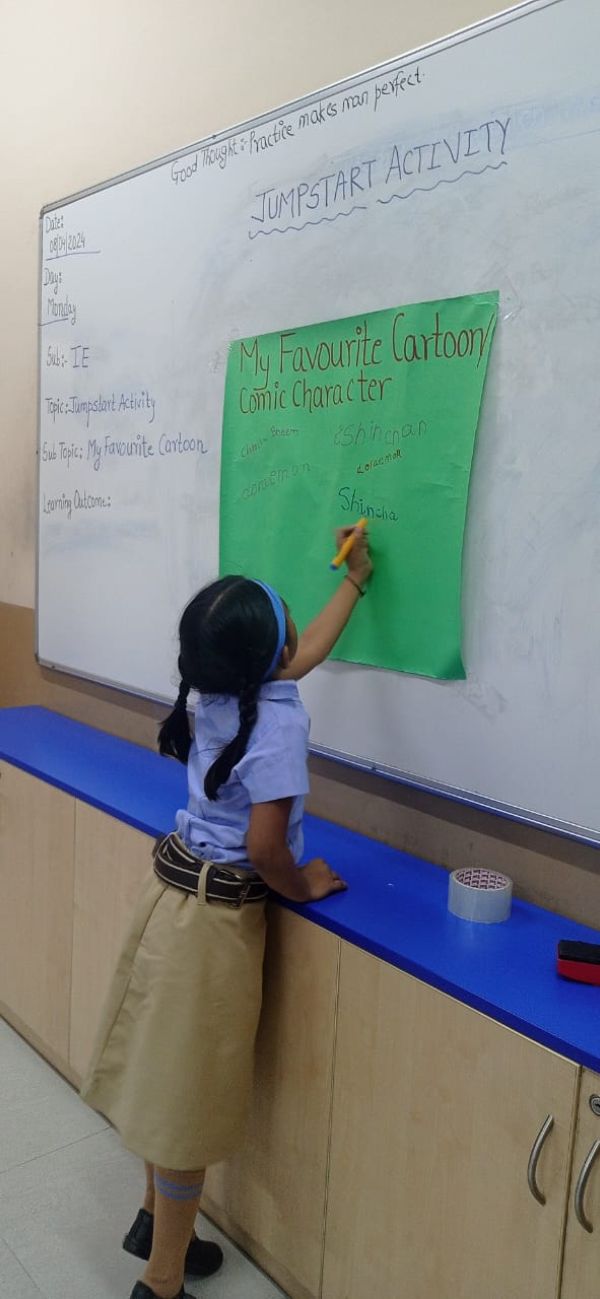 Good Thought:- Practice makes man perfect.
JUMPSTART ACTIVITY
Date:
08/04/2024
Day:
Monday
Sub:- IE
Topic: Jumpstart Activity
Sub Topic: My Favourite Cartoon
Learning Outcome:
My Favourite Cartoon/
Comic Character
Bheem
Shinchan
doraemon
Shincha